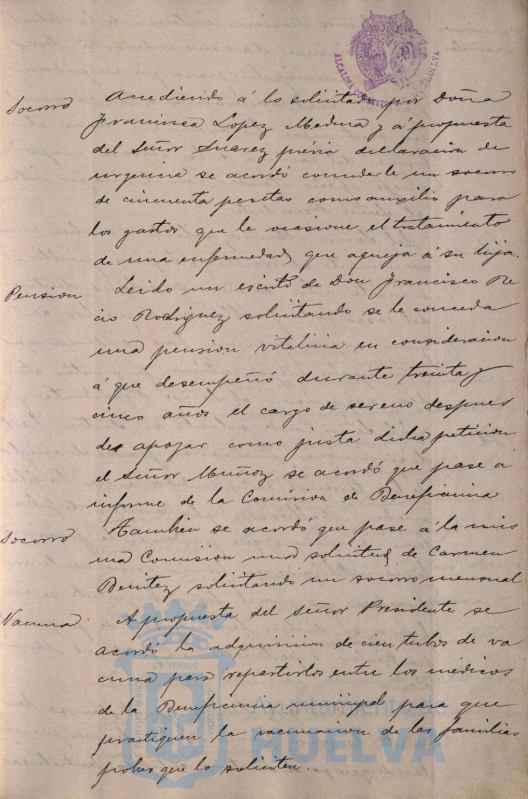 ALCALDIA CONSTITUCIONAL HUELVA
Socorro Accediendo á lo solicitado por Doña
Francisca Lopez Medina y á propuesta
del Señor Suarez prévia declaracion de
urgencia se acordó concederle un socorro
de cincuenta pesetas como auxilio para
los gastos que le ocasione el tratamiento
de una enfermedad que aqueja á su hija.
Pension Leido un escrito de Don Francisco Re
cio Rodriguez solicitando se le conceda
una pension vitalicia en consideracion
á que desempeñó durante treinta y
cinco años el cargo de sereno despues
de apoyar como justa dicha peticion
el Señor Muñoz se acordó que pase á
informe de la Comision de Beneficencia
Socorro Tambien se acordó que pase á la mis
ma Comision una solicitud de Carmen
Benitez solicitando un socorro mensual
Vacuna A propuesta del Señor Presidente se
acordó la adquisicion de cien tubos de va
cuna para repartirlos entre los medicos
de la Beneficencia municipal para que
practiquen la vacunacion de las familias
pobres que lo soliciten.
Ayuntamiento de
HUELVA